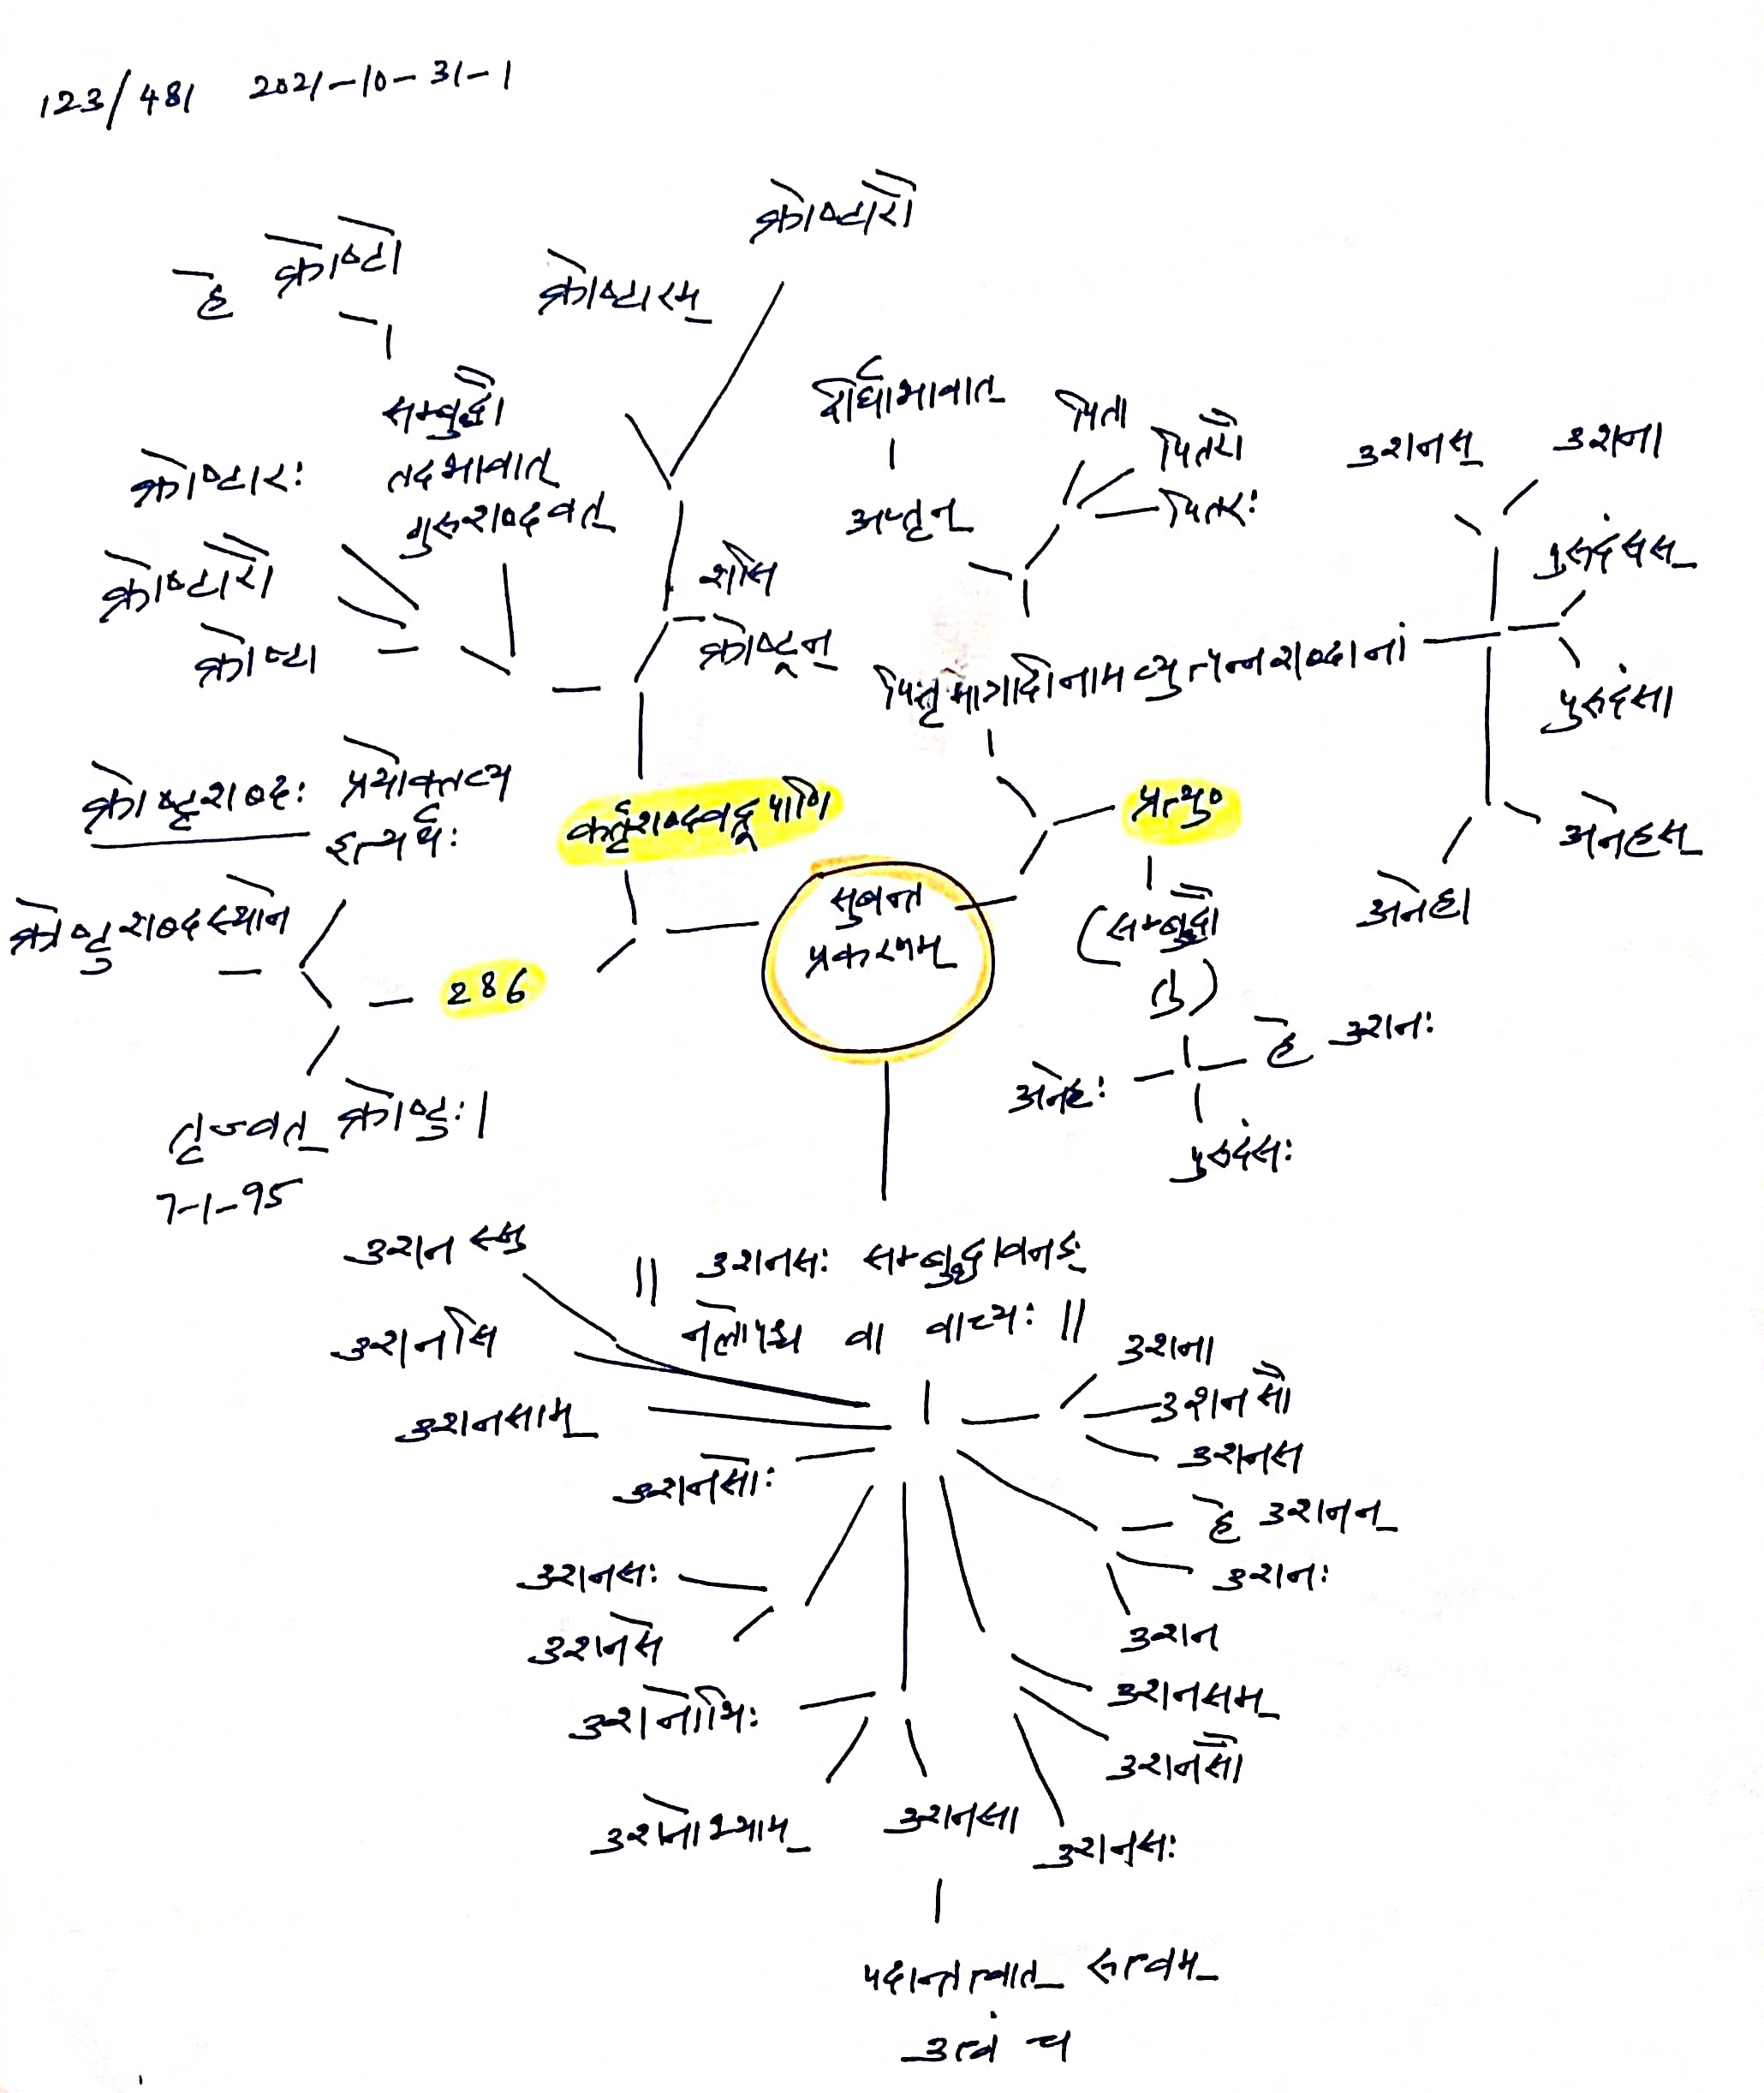 123/481 2021-10-31-1
क्रोष्टारौ
हे क्रोष्टो
क्रोष्टारम्
सम्बुद्धौ
तदभावात्
गुरुशब्दवत्
क्रोष्टारः
क्रोष्टारौ
क्रोष्टा
शसि
क्रोष्टून्
दीर्घाभावात्
अप्तृन्
पिता
पितरौ
पितरः
उशनस्
उशना
पुरुदंसस्
पुरुदंसा
अनेहस्
अनेहा
व्युत्पन्नशब्दानां
क्रोष्टृशब्दः प्रयोक्तव्य
इत्यर्थः
क्रोष्टुशब्दस्थाने
कर्तृशब्दवद्रूपाणि
286
तृज्वत् क्रोष्टुः।
7-1-95
सुबन्त
प्रकरणम्
प्रत्यु०
(सम्बुद्धौ
तु)
हे उशनः
अनेहः
पुरुदंसः
॥ उशनसः सम्बुद्धावनङ्
नलोपश्च वा वाच्यः ॥
उशनस्सु
उशनसि
उशनसाम्
उशनसोः
उशनसः
उशनसे
उशनोभिः
उशनोभ्याम्
उशनसा
उशना
उशनसौ
उशनस
हे उशनन्
उशनः
उशन
उशनसम्
उशनसौ
उशनसः
पदान्तत्वात् रुत्वम्
उत्वं च